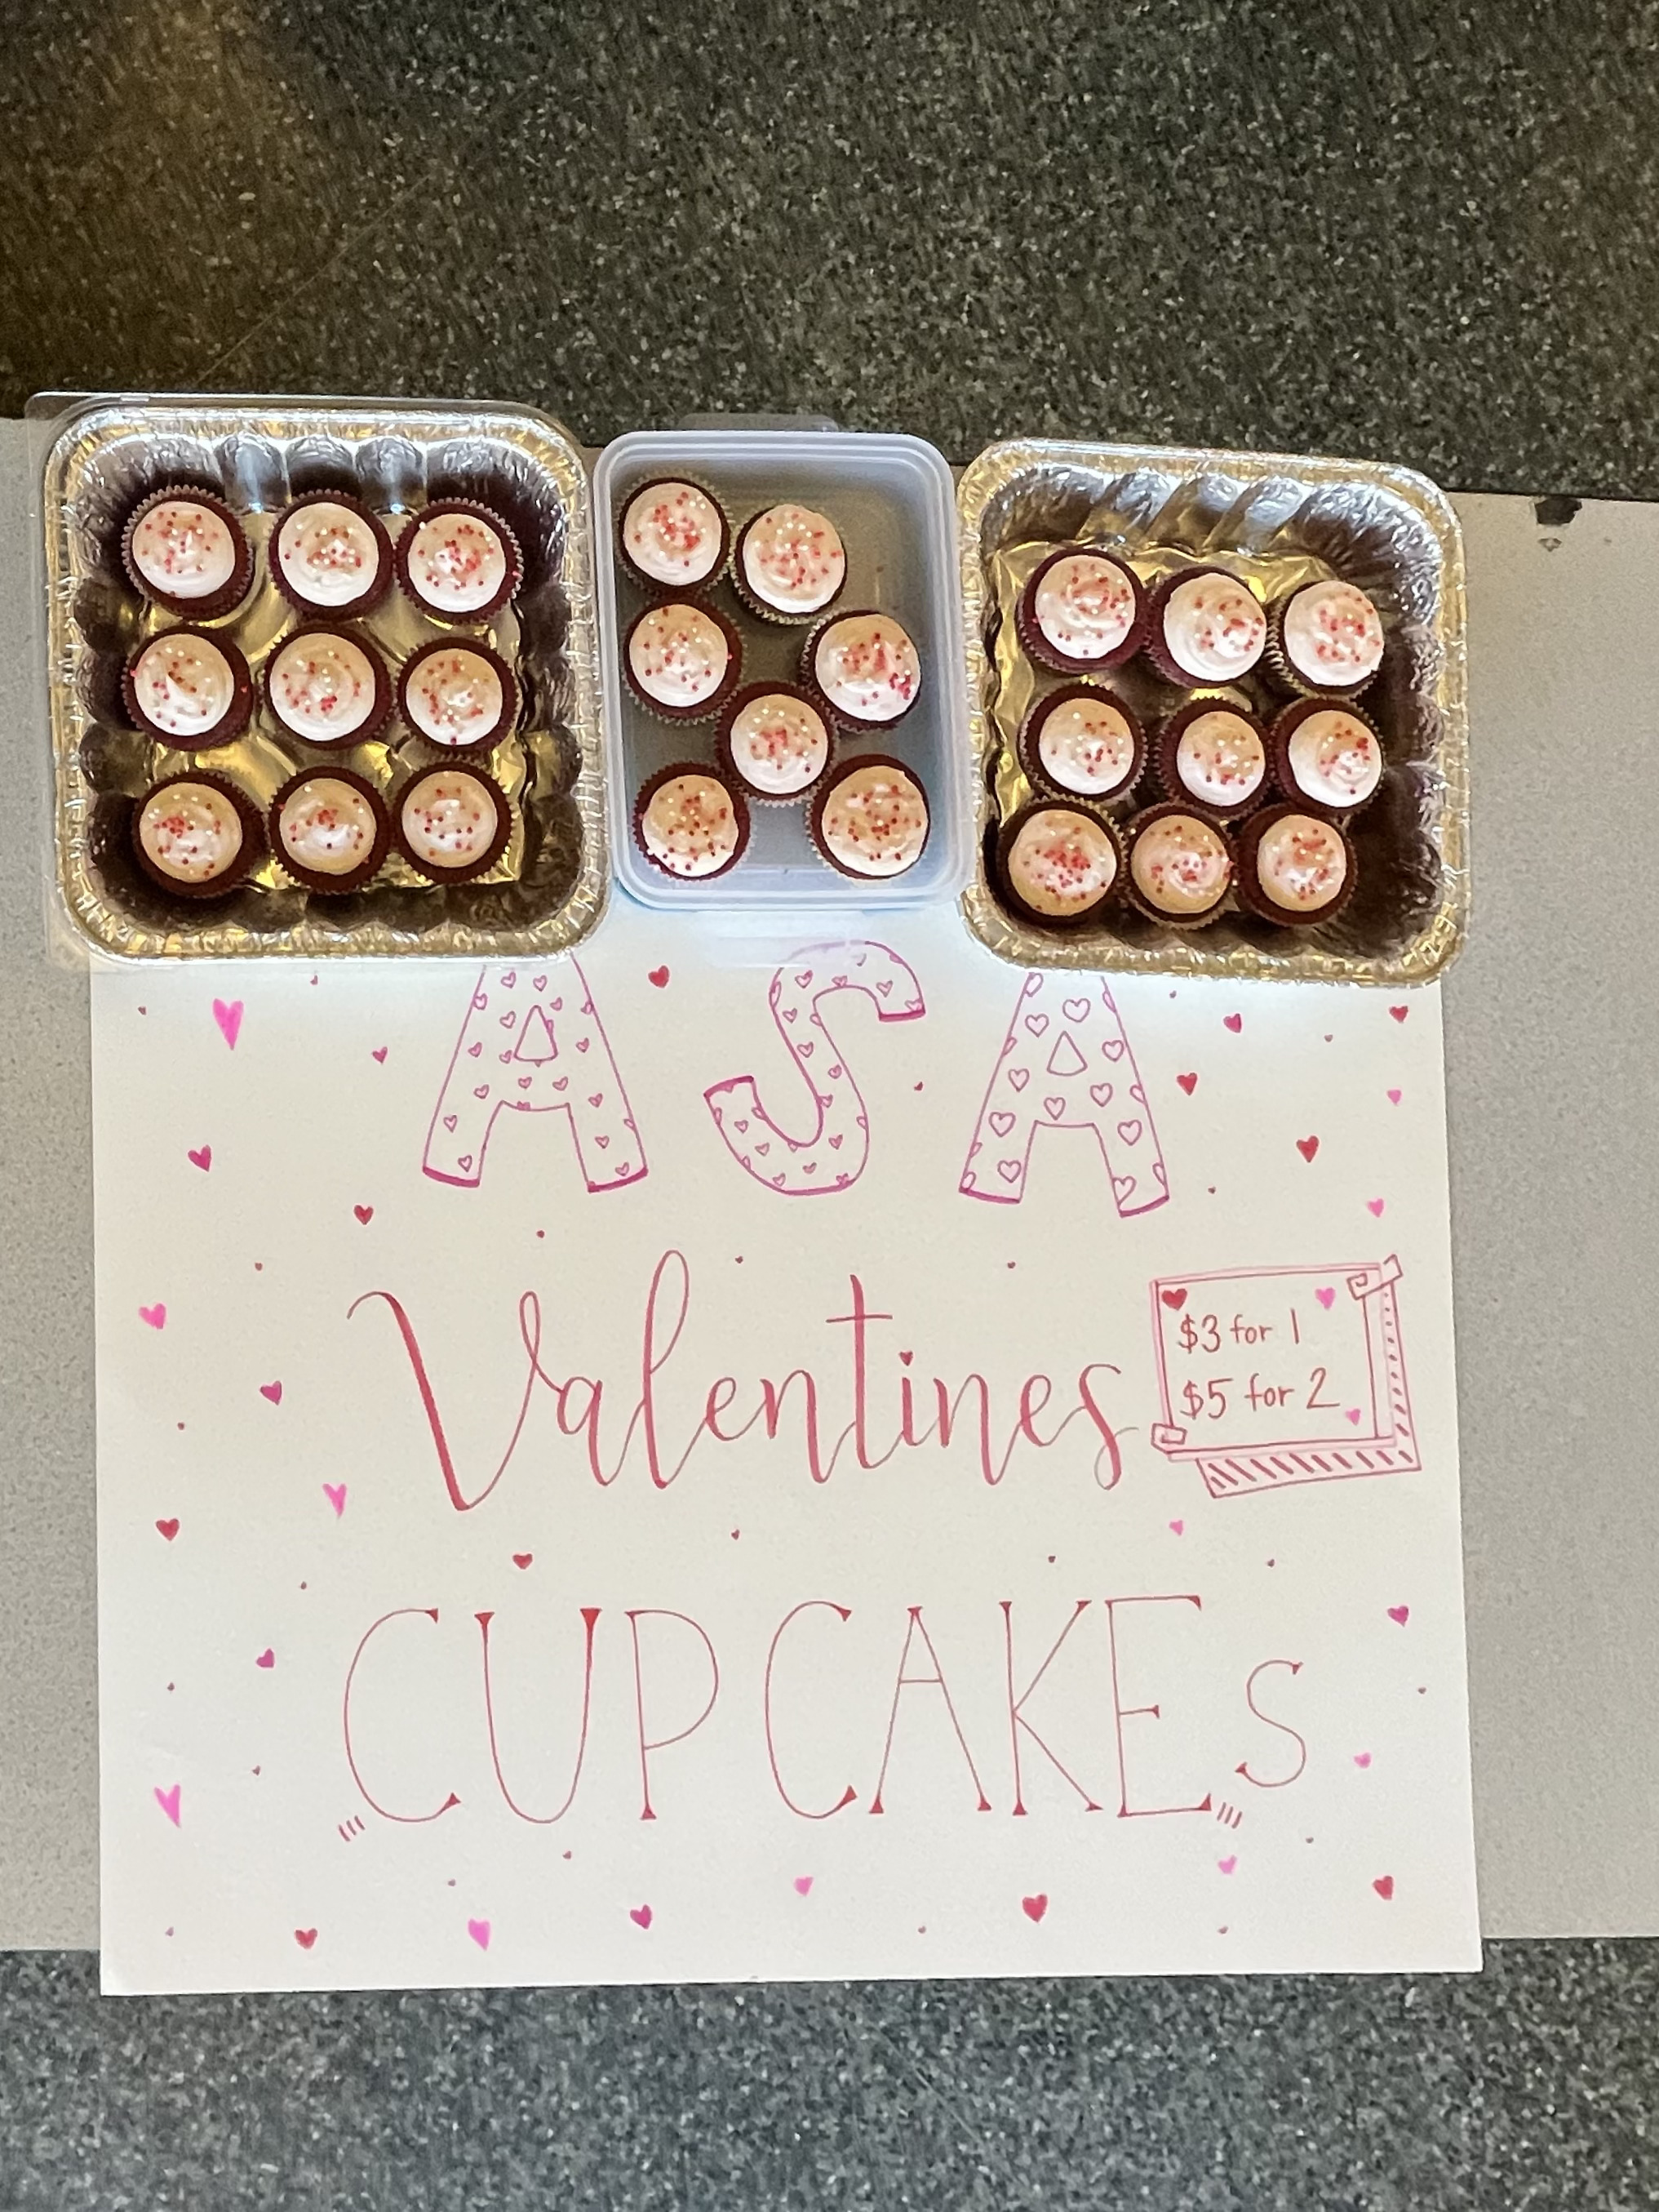 ASA
Valentines
$3 for 1
$5 for 2
CUPCAKEs